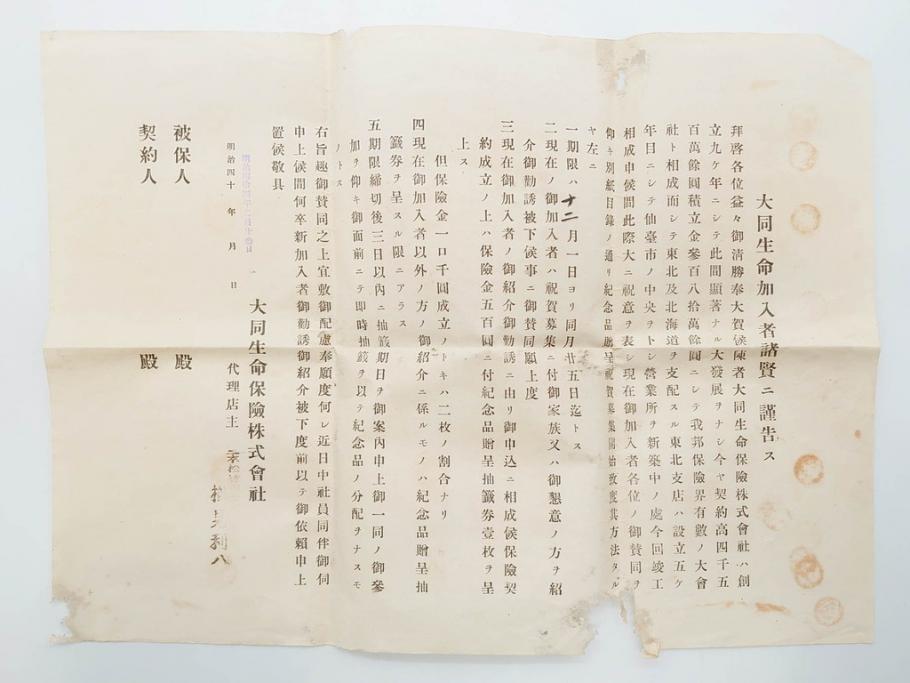 大同生命加入者諸賢ニ謹告ス
拜啓各位益々御清勝奉大賀候陳者大同生命保險株式會社ハ創
立九ケ年ニシテ此間顯著ナル大發展ヲナシ今ヤ契約高四千五
百萬餘圓積立金參百八拾萬餘圓ニシテ我邦保險界有數ノ大會
社ト相成而シテ東北及北海道ヲ支配スル東北支店ハ設立五ケ
年目ニシテ仙臺市ノ中央ヲトシ營業所ヲ新築中ノ處今回竣工
相成申候間此際大ニ祝意ヲ表シ現在御加入者各位ノ御賛同ヲ
仰キ別紙目錄ノ通リ紀念品贈呈祝賀募集開始致度其方法タル
ヤ左ニ
一期限ハ十二月一日ヨリ同月廿五日迄トス
二現在ノ御加入者ハ祝賀募集ニ付御家族又ハ御懇意ノ方ヲ紹
介御勸誘被下候事ニ御賛同願上度
三現在御加入者ノ御紹介御勸誘ニ由リ御申込ニ相成候保險契
約成立ノ上ハ保險金五百圓ニ付紀念品贈呈抽籤券壹枚ヲ呈
上ス
但保險金一口千圓成立ノトキハ二枚ノ割合ナリ
四現在御加入者以外ノ方ノ御紹介ニ係ルモノハ紀念品贈呈抽
籤券ヲ呈スル限ニアラス
五期限締切後三日以內ニ抽籤期日ヲ御案內申上御一同ノ御參
加ヲ仰キ御面前ニテ卽時抽籤ヲ以テ紀念品ノ分配ヲナスモ
ノトス
右旨趣御賛同之上宜敷御配慮奉願度何レ近日中社員同伴御伺
申上候間何卒新加入者御勸誘御紹介被下度前以テ御依賴申上
置候敬具
明治四十年月日
大同生命保險株式會社
代理店主
利八
被保人殿
契約人殿